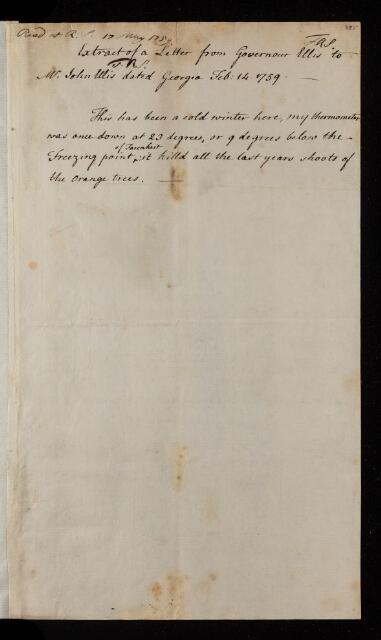 Read at R. S. 17 May 1759
Extract of a Letter from Governour Ellis FRS. to
Mr. John Ellis F. R. S. dated Georgia Feb: 14 1759 —
This has been a cold winter here, my thermometer
was once down at 23 degrees, or 9 degrees below the
freezing point of Farenheit, it killd all the last years shoots of
the Orange trees. —